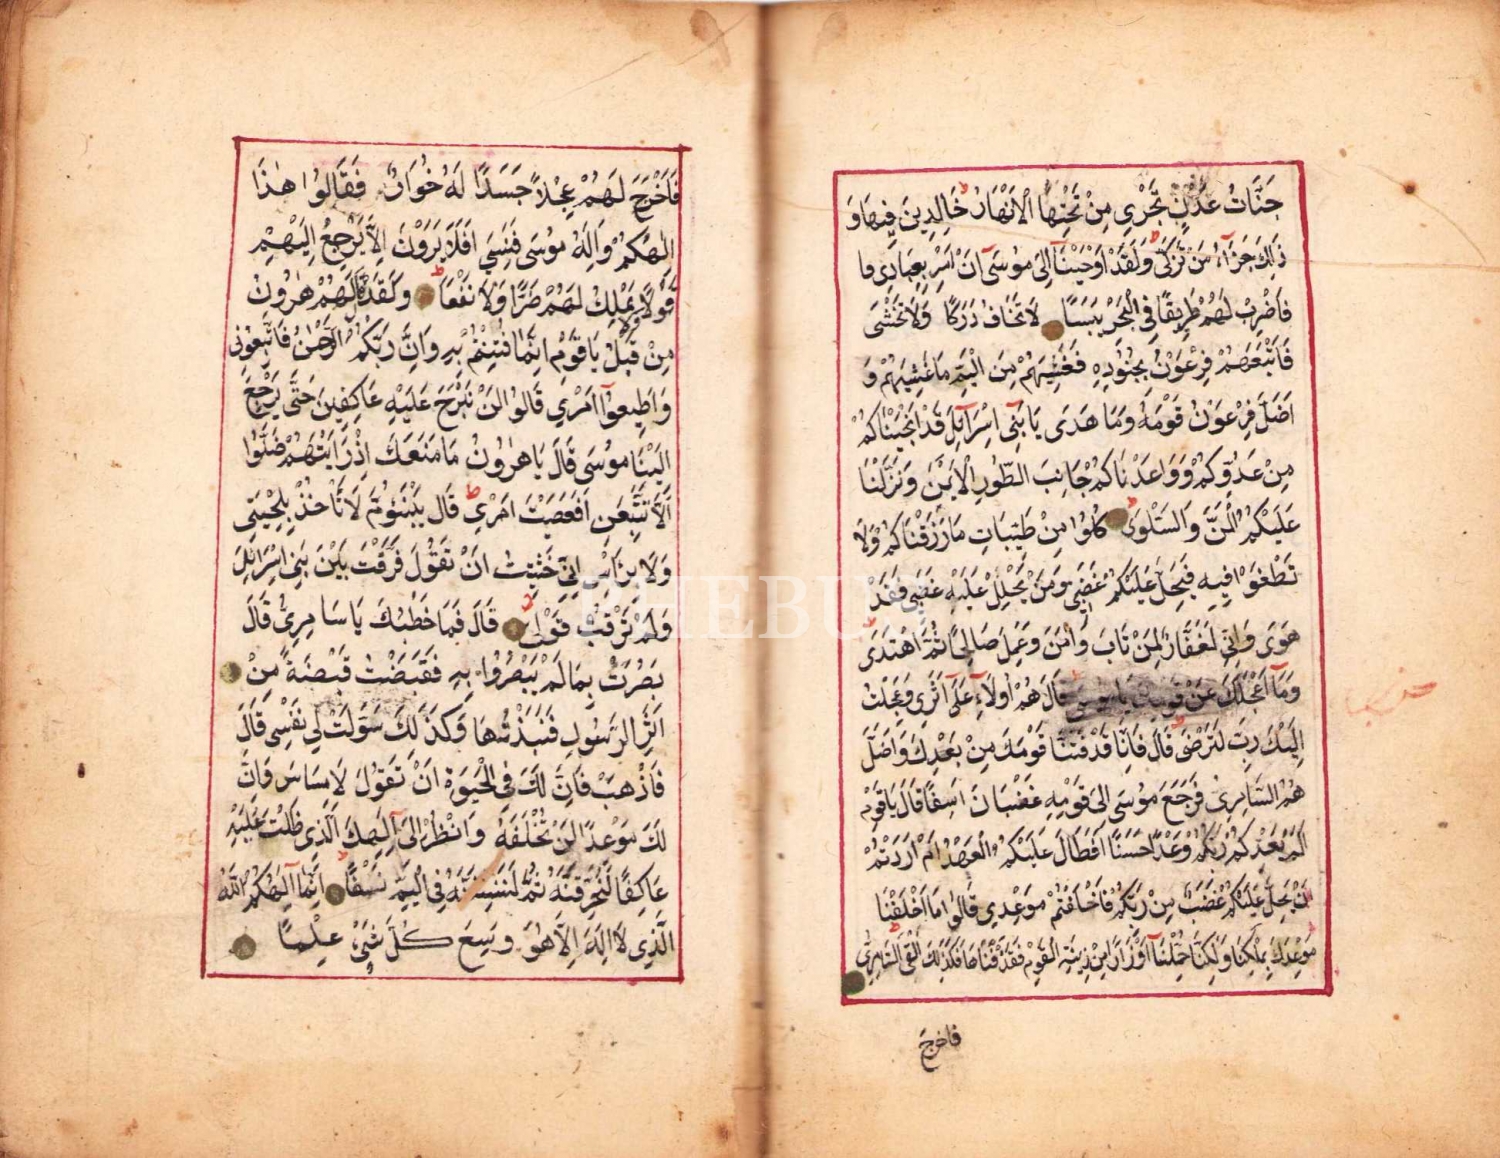 جَنَّاتُ عَدْنٍ تَجْرِي مِنْ تَحْتِهَا الْاَنْهَارُ خَالِدِينَ فِيهَا وَ
ذٰلِكَ جَزَآءُ مَنْ تَزَكّٰى وَلَقَدْ اَوْحَيْنَآ اِلٰى مُوسٰٓى اَنْ اَسْرِ بِعِبَادِي فا
فَاضْرِبْ لَهُمْ طَرِيقًا فِي الْبَحْرِ يَبَسًا لَا تَخَافُ دَرَكًا وَلَا تَخْشٰى
فَاَتْبَعَهُمْ فِرْعَوْنُ بِجُنُودِهِ فَغَشِيَهُمْ مِنَ الْيَمِّ مَا غَشِيَهُمْ وَ
اَضَلَّ فِرْعَوْنُ قَوْمَهُ وَمَا هَدٰى يَا بَنِٓي اِسْرَآئِلَ قَدْ اَنْجَيْنَاكُمْ
مِنْ عَدُوِّكُمْ وَوَاعَدْنَاكُمْ جَانِبَ الطُّورِ الْاَيْمَنَ وَنَزَّلْنَا
عَلَيْكُمُ الْمَنَّ وَالسَّلْوٰى كُلُوا مِنْ طَيِّبَاتِ مَا رَزَقْنَاكُمْ وَلَا
تَطْغَوْا فِيهِ فَيَحِلَّ عَلَيْكُمْ غَضَبِي وَمَنْ يَحْلِلْ عَلَيْهِ غَضَبِي فَقَدْ
هَوٰى وَاِنِّي لَغَفَّارٌ لِمَنْ تَابَ وَاٰمَنَ وَعَمِلَ صَالِحًا ثُمَّ اهْتَدٰى
وَمَآ اَعْجَلَكَ عَنْ قَوْمِكَ يَا مُوسٰى قَالَ هُمْ اُولَآءِ عَلٰٓى اَثَرِي وَعَجِلْتُ
اِلَيْكَ رَبِّ لِتَرْضٰى قَالَ فَاِنَّا قَدْ فَتَنَّا قَوْمَكَ مِنْ بَعْدِكَ وَاَضَلَّ
هُمُ السَّامِرِيُّ فَرَجَعَ مُوسٰى اِلٰى قَوْمِهِ غَضْبَانَ اَسِفًا قَالَ يَا قَوْمِ
اَلَمْ يَعِدْكُمْ رَبُّكُمْ وَعْدًا حَسَنًا اَفَطَالَ عَلَيْكُمُ الْعَهْدُ اَمْ اَرَدْتُمْ
اَنْ يَحِلَّ عَلَيْكُمْ غَضَبٌ مِنْ رَبِّكُمْ فَاَخْلَفْتُمْ مَوْعِدِي قَالُوا مَا اَخْلَفْنَا
مَوْعِدَكَ بِمَلْكِنَا وَلٰكِنَّا حُمِّلْنَآ اَوْزَارًا مِنْ زِينَةِ الْقَوْمِ فَقَذَفْنَاهَا فَكَذٰلِكَ اَلْقَى السَّامِرِيُّ
فاخرج
فَاَخْرَجَ لَهُمْ عِجْلًا جَسَدًا لَهُ خُوَارٌ فَقَالُوا هٰذَا
اِلٰهُكُمْ وَاِلٰهُ مُوسٰى فَنَسِيَ اَفَلَا يَرَوْنَ اَلَّا يَرْجِعُ اِلَيْهِمْ
قَوْلًا وَلَا يَمْلِكُ لَهُمْ ضَرًّا وَلَا نَفْعًا وَلَقَدْ قَالَ لَهُمْ هٰرُونُ
مِنْ قَبْلُ يَا قَوْمِ اِنَّمَا فُتِنْتُمْ بِهِ وَاِنَّ رَبَّكُمُ الرَّحْمٰنُ فَاتَّبِعُونِي
وَاَطِيعُوٓا اَمْرِي قَالُوا لَنْ نَبْرَحَ عَلَيْهِ عَاكِفِينَ حَتّٰى يَرْجِعَ
اِلَيْنَا مُوسٰى قَالَ يَا هٰرُونُ مَا مَنَعَكَ اِذْ رَاَيْتَهُمْ ضَلُّوا
اَلَّا تَتَّبِعَنِ اَفَعَصَيْتَ اَمْرِي قَالَ يَبْنَؤُمَّ لَا تَاْخُذْ بِلِحْيَتِي
وَلَا بِرَاْسِي اِنِّي خَشِيتُ اَنْ تَقُولَ فَرَّقْتَ بَيْنَ بَنِي اِسْرَائِلَ
وَلَمْ تَرْقُبْ قَوْلِي قَالَ فَمَا خَطْبُكَ يَا سَامِرِيُّ قَالَ
بَصُرْتُ بِمَا لَمْ يَبْصُرُوا بِهِ فَقَبَضْتُ قَبْضَةً مِنْ
اَثَرِ الرَّسُولِ فَنَبَذْتُهَا وَكَذٰلِكَ سَوَّلَتْ لِي نَفْسِي قَالَ
فَاذْهَبْ فَاِنَّ لَكَ فِي الْحَيٰوةِ اَنْ تَقُولَ لَا مِسَاسَ وَاِنَّ
لَكَ مَوْعِدًا لَنْ تُخْلَفَهُ وَانْظُرْ اِلٰٓى اِلٰهِكَ الَّذِي ظَلْتَ عَلَيْهِ
عَاكِفًا لَنُحَرِّقَنَّهُ ثُمَّ لَنَنْسِفَنَّهُ فِي الْيَمِّ نَسْفًا اِنَّمَآ اِلٰهُكُمُ اللّٰهُ
الَّذِي لَا اِلٰهَ اِلَّا هُوَ وَسِعَ كُلَّ شَيْءٍ عِلْمًا